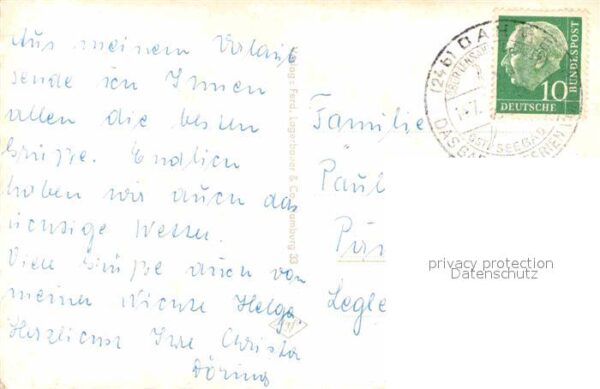 Aus meinem Urlaub
sende ich Ihnen
allen die besten
Grüße. Endlich
haben wir auch das
richtige Wetter.
Viele Grüße auch von
meiner Nichte Helga
Herzlichst Ihre Christa
Döring
Ferd. Lagerbauer & Co., Hamburg 33
Familie
Paul
Legle
(24b) DA
SEEBAD
DAS GA
FERIEN
DEUTSCHE
BUNDESPOST
10
privacy protection
Datenschutz